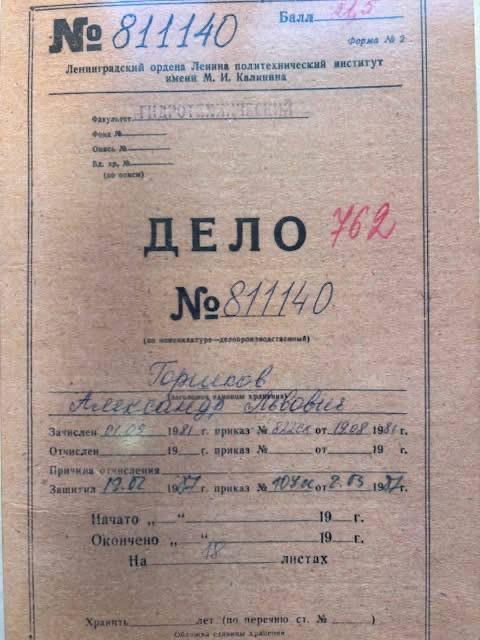 № 811140
Балл 21,5
Форма № 2
Ленинградский ордена Ленина политехнический институт
имени М. И. Калинина
Факультет ГИДРОТЕХНИЧЕСКИЙ
Фонд №
Опись №
Ед. хр. №
(по описи)
ДЕЛО 762
№ 811140
(по номенклатуре—делопроизводственный)
Горшков
(заголовок единицы хранения)
Александр Львович
Зачислен 01.09 1981 г. приказ № от 19.08 1981 г.
Отчислен 19 г. приказ № от 19 г.
Причина отчисления
Защитил 19.02 1987 г. приказ № от 2.03 1987 г.
Начато „ “ 19 г.
Окончено „ “ 19 г.
На 18 листах
Хранить лет (по перечню ст. № )
Обложка единицы хранения